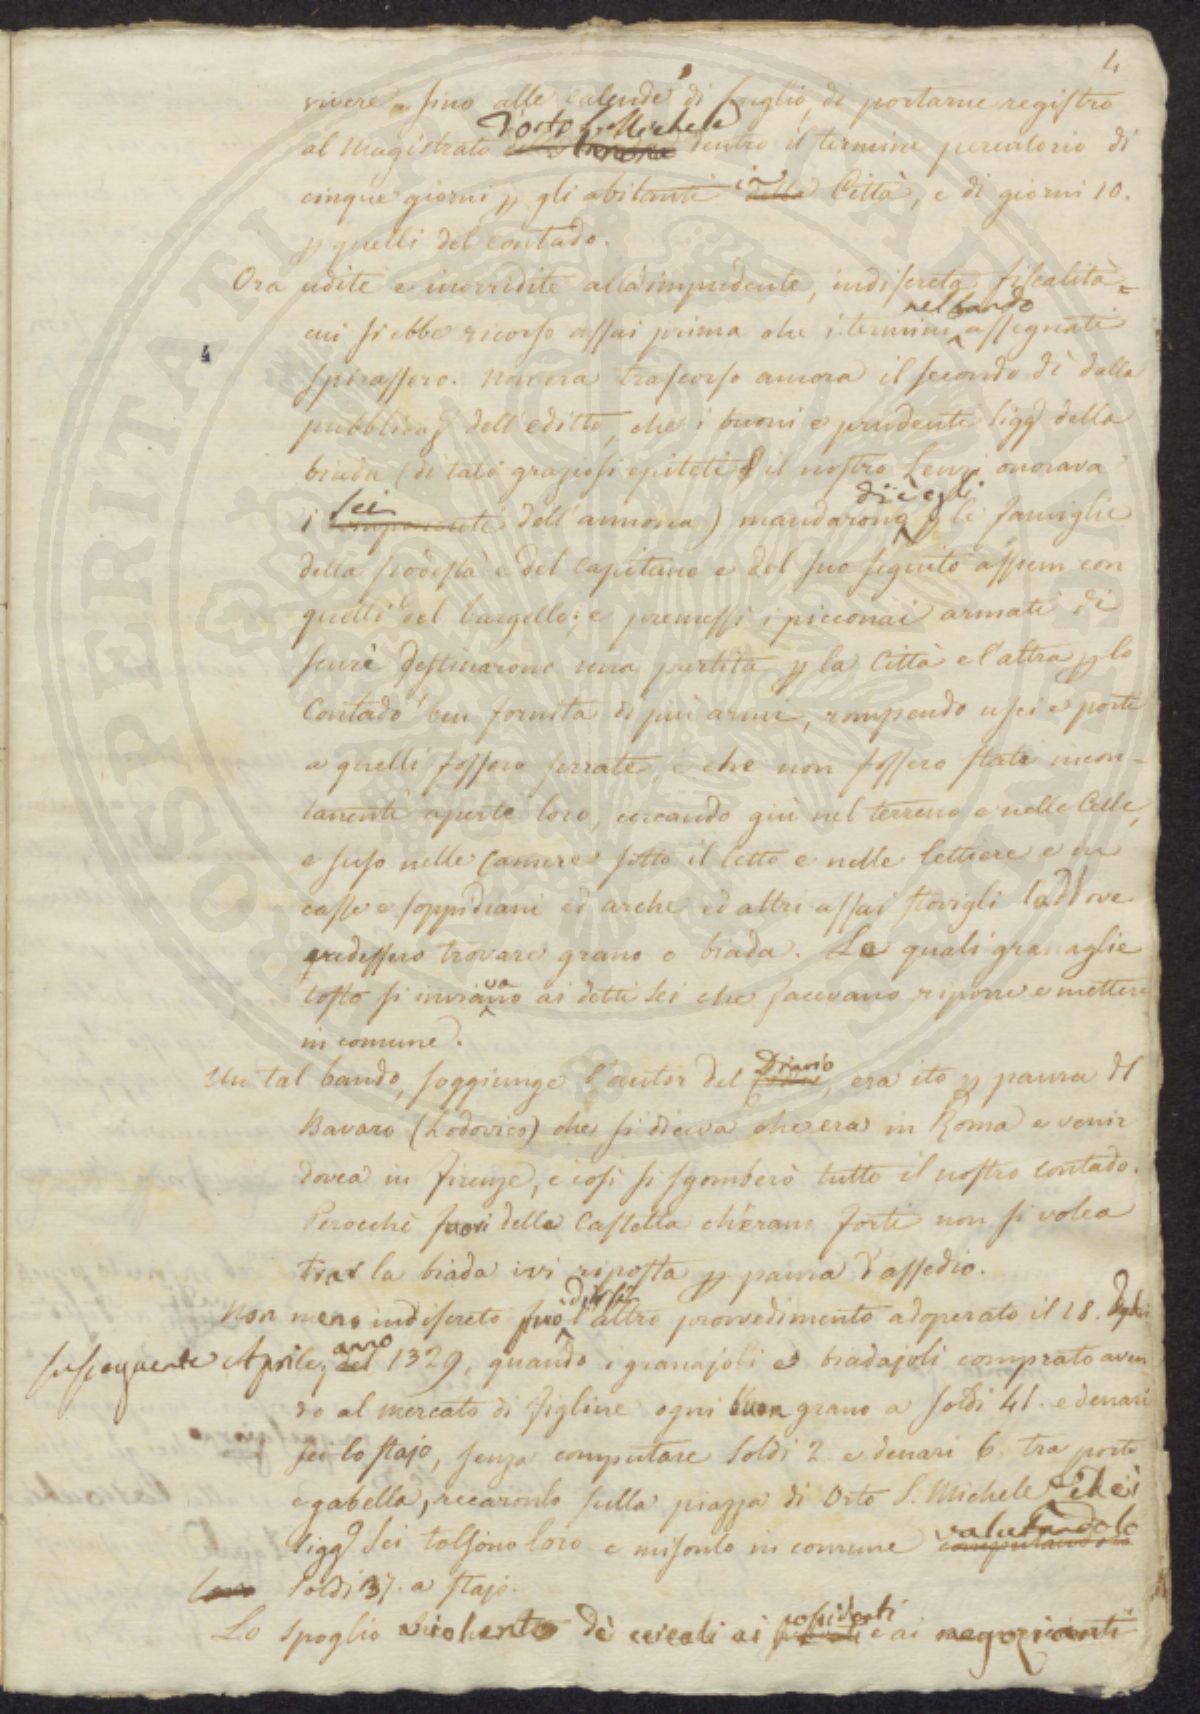 4
vivere fino alle calende di luglio, di portarne registro
al Magistrato d'Orto S. Michele dentro il termine perentorio di
cinque giorni p gli abitanti in Città, e di giorni 10.
p quelli del contado.
Ora udite e inorridite all'impudente, indiscreta fiscalità
cui si ebbe ricorso assai prima che i termini nel bando assegnati
spirassero. Non era trascorso ancora il secondo dì dalla
pubblicaz dell'editto, che i buoni e prudenti Sigg della
biada (di tali graziosi epiteti il nostro Lenzi onorava
i sei dell'annona) mandarono dic'egli p le famiglie
della podestà e del capitano e del suo seguito assem con
quelli del bargello; e premessi i picconai armati di
scuri destinarono una partita p la Città e l'altra p lo
Contado ben fornita di più armi, rompendo usci e porte
a quelli fossero serrate, e che non fossero state incon-
tanenti aperte loro, cercando giù nel terreno e nelle Celle,
e suso nelle Camere sotto il letto e nelle lettiere e in
casse e soppidiani ed arche ed altri assai stovigli laddove
credessero trovare grano o biada. Le quali granaglie
tosto si inviavano ai detti sei che facevano riporre e mettere
in comune.
Un tal bando, soggiunge l'autor del Diario, era ito p paura del
Bavaro (Lodovico) che si diceva che era in Roma e venir
dovea in Firenze, e così si sgomberò tutto il nostro contado.
Perocchè fuori delle Castella ch'erano forti non si volea
trar la biada ivi riposta p paura d'assedio.
Non meno indiscreto fu l'altro provvedimento adoperato il 18.
susseguente Aprile, anno 1329, quando i granajoli e biadajoli comprato aven
do al mercato di Figline ogni buon grano a soldi 41. e denari
sei lo stajo, senza computare soldi 2 e denari 6. tra porto
e gabella, recaronlo sulla piazza di Orto S. Michele e che i
Sigg Sei tolsono loro e misonlo in comune valutandolo
soldi 37. a stajo.
Lo spoglio violento de cereali ai possidenti e ai negozianti